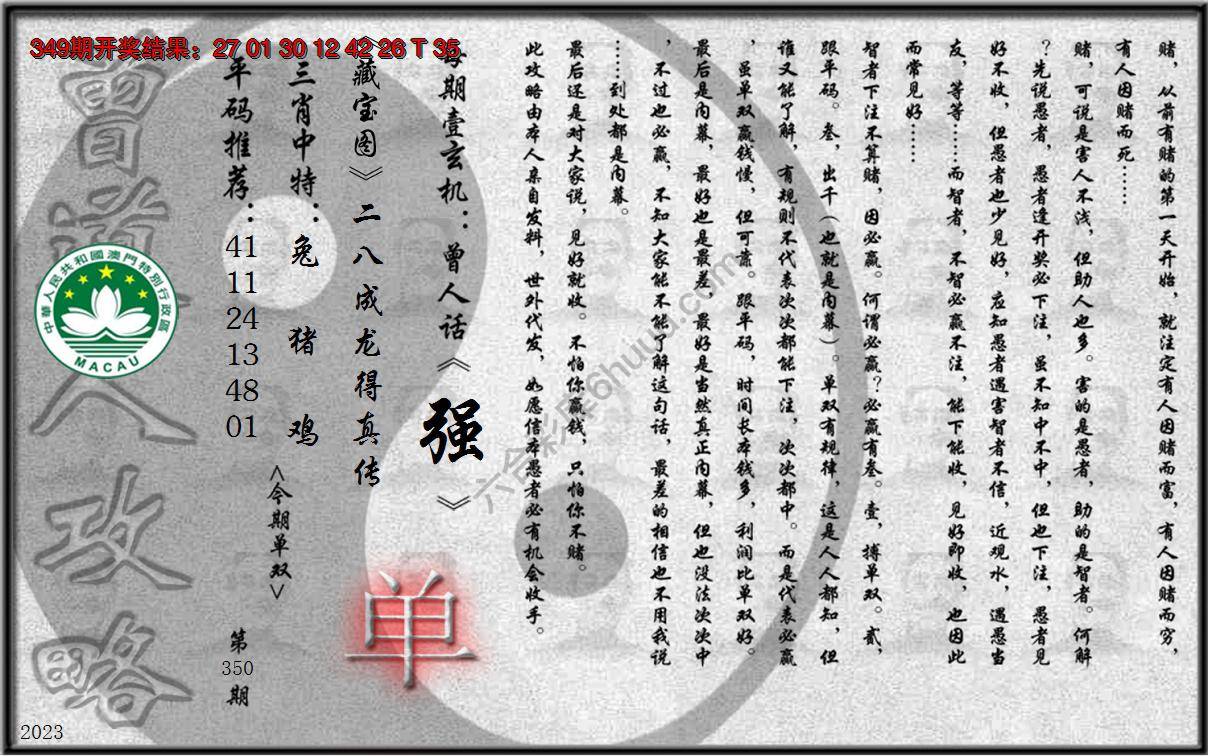 349期开奖结果：27 01 30 12 42 26 T 35
赌，从前有赌的第一天开始，就注定有人因赌而富，有人因赌而穷，
有人因赌而死……
赌，可说是害人不浅，但助人也多。害的是愚者，助的是智者。何解
？先说愚者，愚者逢开奖必下注，虽不知中不中，但也下注，愚者见
好不收，但愚者也少见好，应知愚者遇害智者不信，近观水，遇愚当
友，等等……而智者，不智必赢不注，能下能收，见好即收，也因此
而常见好……
智者下注不算赌，因必赢。何谓必赢？必赢有叁。壹，搏单双。贰，
跟平码。叁，出千（也就是内幕）。单双有规律，这是人人都知，但
谁又能了解，有规则不代表次次都能下注，次次都中。而是代表必赢
，虽单双赢钱慢，但可靠。跟平码，时间长本钱多，利润比单双好。
最后是内幕，最好也是最差，最好是当然真正内幕，但也没法次次中
，不过也必赢，不知大家能不能了解这句话，最差的相信也不用我说
……到处都是内幕。
最后还是对大家说，见好就收。不怕你赢钱，只怕你不赌。
此攻略由本人亲自发料，世外代发，如愿信本愚者必有机会收手。
每期壹玄机：曾人话《强》
《藏宝图》二八成龙得真传
三肖中特：兔 猪 鸡
<今期单双>
单
平码推荐：
41
11
24
13
48
01
第
350
期
曾道人攻略
中華人民共和國澳門特別行政區
MACAU
六合彩票6huuu.com
2023